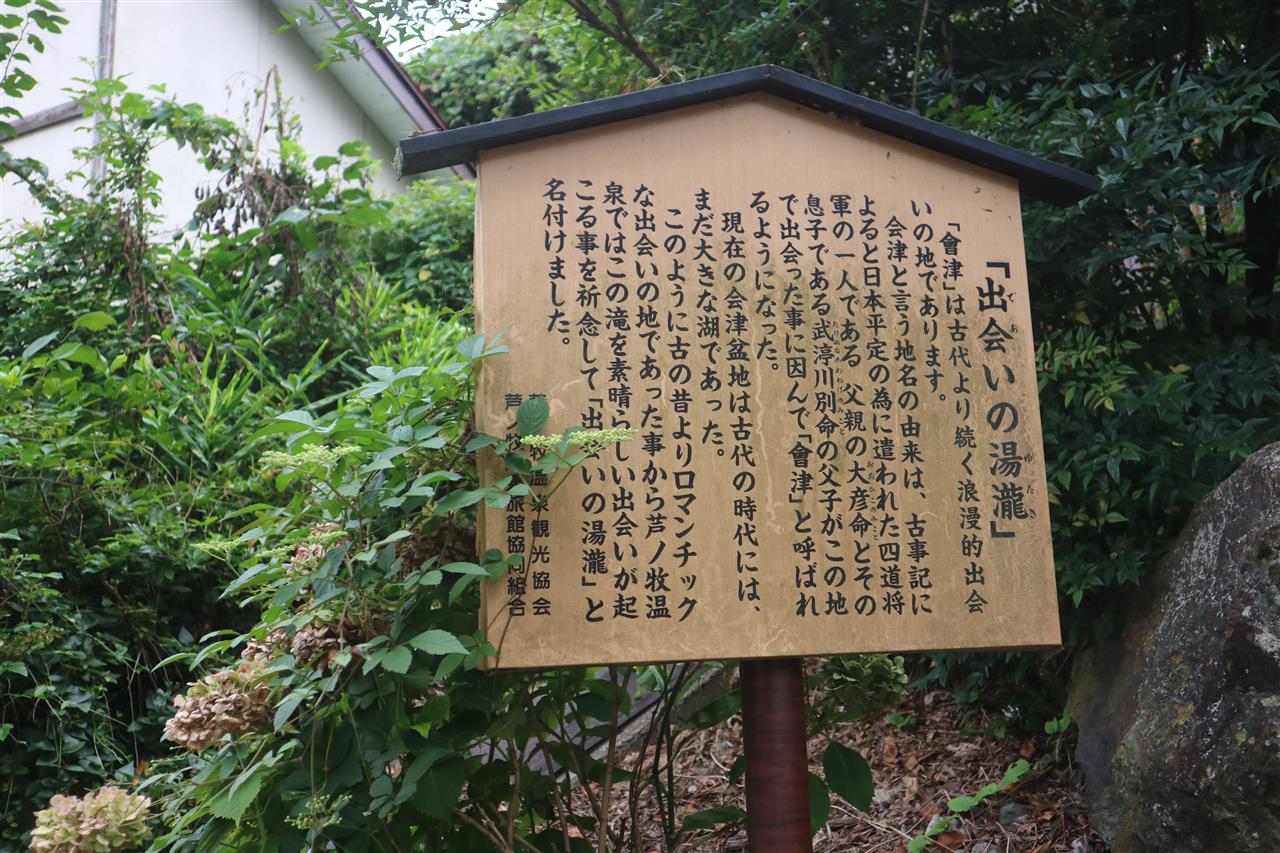 「出会いの湯瀧」
「會津」は古代より続く浪漫的出会
いの地であります。
会津と言う地名の由来は、古事記に
よると日本平定の為に遣わされた四道将
軍の一人である 父親の大彦命とその
息子である武渟川別命の父子がこの地
で出会った事に因んで「會津」と呼ばれ
るようになった。
現在の会津盆地は古代の時代には、
まだ大きな湖であった。
このように古の昔よりロマンチック
な出会いの地であった事から芦ノ牧温
泉ではこの滝を素晴らしい出会いが起
こる事を祈念して「出会いの湯瀧」と
名付けました。
牧温泉観光協会
芦ノ牧 旅館協同組合